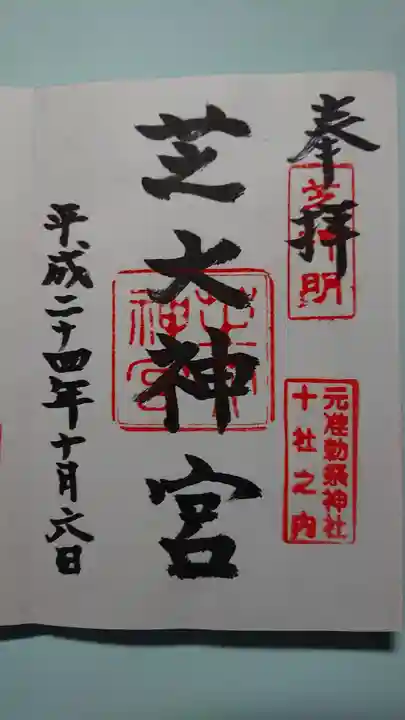 奉拝
芝神明
元准勅祭神社
十社之内
芝大神宮
平成二十四年十月六日